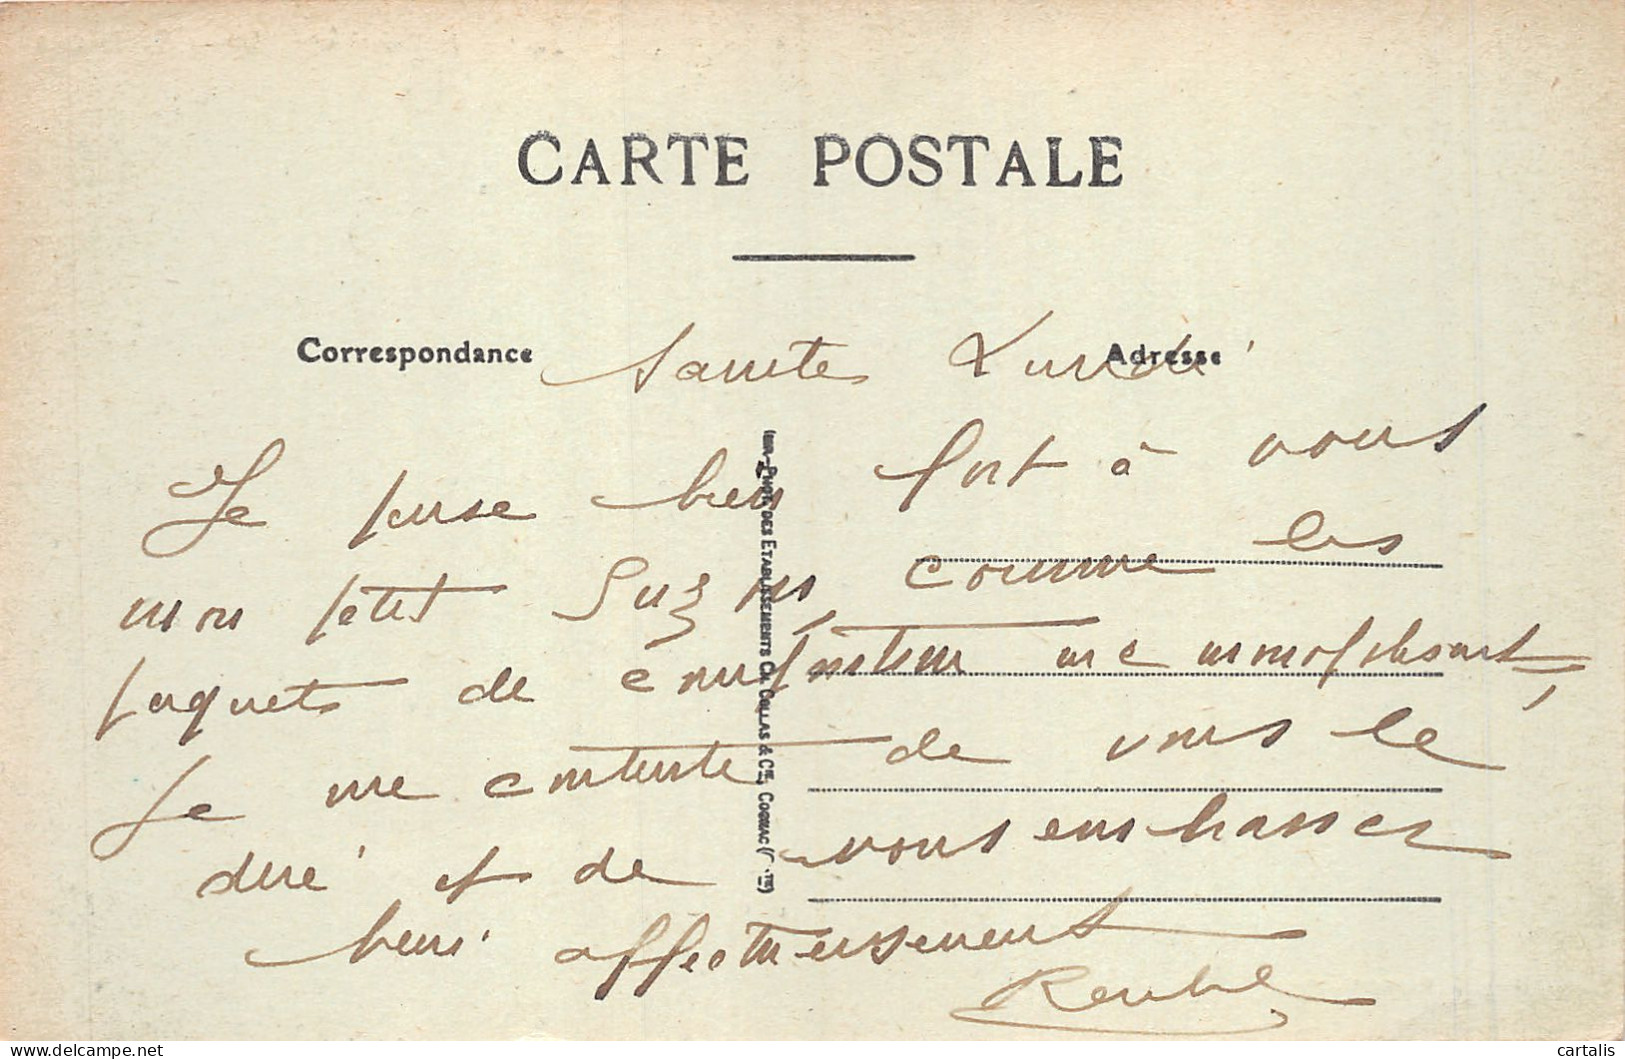 CARTE POSTALE
Correspondance
Adresse
Je pense bien fort à vous
mon petit Suzon, comme les
paquets de me
Je me contente de vous le
dire et de vous embrasser
bien affectueusement
IMP.-PHOT. DES ETABLISSEMENTS CH. COLLAS & Cie, COGNAC
cartalis
delcampe.net